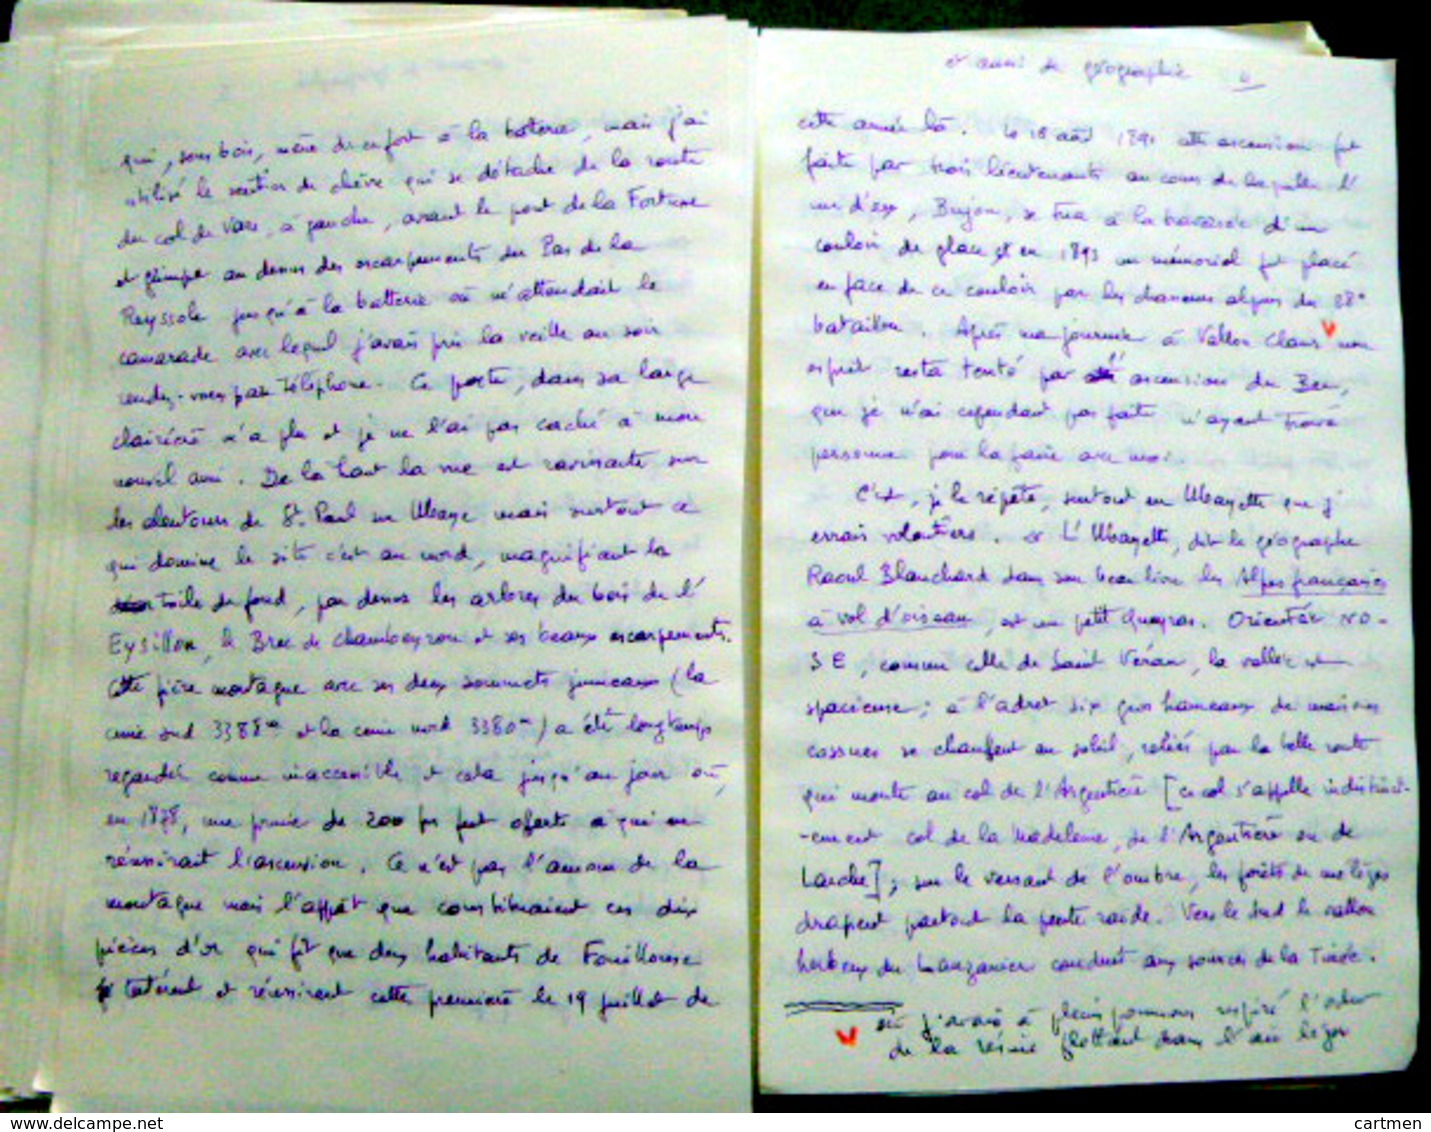 qui, sous bois, mène du fort à la batterie, mais j'ai
utilisé le sentier de chèvre qui se détache de la route
du col de Vars, à gauche, avant le pont de la Fortune
et grimpe au dessus des escarpements du Pas de la
Reyssole jusqu'à la batterie où m'attendait le
camarade avec lequel j'avais pris la veille au soir
rendez-vous par téléphone. Ce poste, dans sa large
clairière m'a plu et je ne l'ai pas caché à mon
nouvel ami. De là haut la vue est ravissante sur
les alentours de St. Paul sur Ubaye mais surtout ce
qui domine le site c'est au nord, magnifiant la
toile de fond, par dessus les arbres du bois de l'
Eysillon, le Brec de Chambeyron et ses beaux escarpements.
Cette fière montagne avec ses deux sommets jumeaux (la
cime sud 3388m et la cime nord 3380m) a été longtemps
regardée comme inaccessible et cela jusqu'au jour où,
en 1878, une prime de 200 frs fut offerte à qui en
réussirait l'ascension. Ce n'est pas l'amour de la
montagne mais l'appât que constituaient ces dix
pièces d'or qui fit que deux habitants de Fouillouse
tentèrent et réussirent cette première le 19 juillet de
et aussi de géographie
cette année là. Le 18 août 1891 cette ascension fut
faite par trois lieutenants au cours de laquelle l'
un d'eux, Bujon, se tua à la traversée d'un
couloir de glace et en 1893 un mémorial fut placé
en face de ce couloir par les chasseurs alpins du 28e
bataillon. Après ma journée à Vallon Claus V mon
esprit resta tenté par l'ascension du Brec,
que je n'ai cependant pas faite n'ayant trouvé
personne pour la faire avec moi.
C'est, je le répète, surtout en Ubayette que j'
errais volontiers. L'Ubayette, dit le géographe
Raoul Blanchard dans son beau livre les Alpes françaises
à vol d'oiseau, est un petit Queyras. Orientée NO-
SE, comme celle de Saint Véran, la vallée est
spacieuse ; à l'adret six gros hameaux de maisons
cossues se chauffent au soleil, reliés par la belle route
qui monte au col de l'Argentière [ce col s'appelle indistinct-
-ement col de la Madeleine, de l'Argentière ou de
Larche] ; sur le versant de l'ombre, les forêts de mélèzes
drapent partout la pente raide. Vers le sud le vallon
herbeux du Lauzanier conduit aux sources de la Tinée.
V où j'avais à pleins poumons respiré l'odeur
de la résine flottant dans l'air léger
cartmen